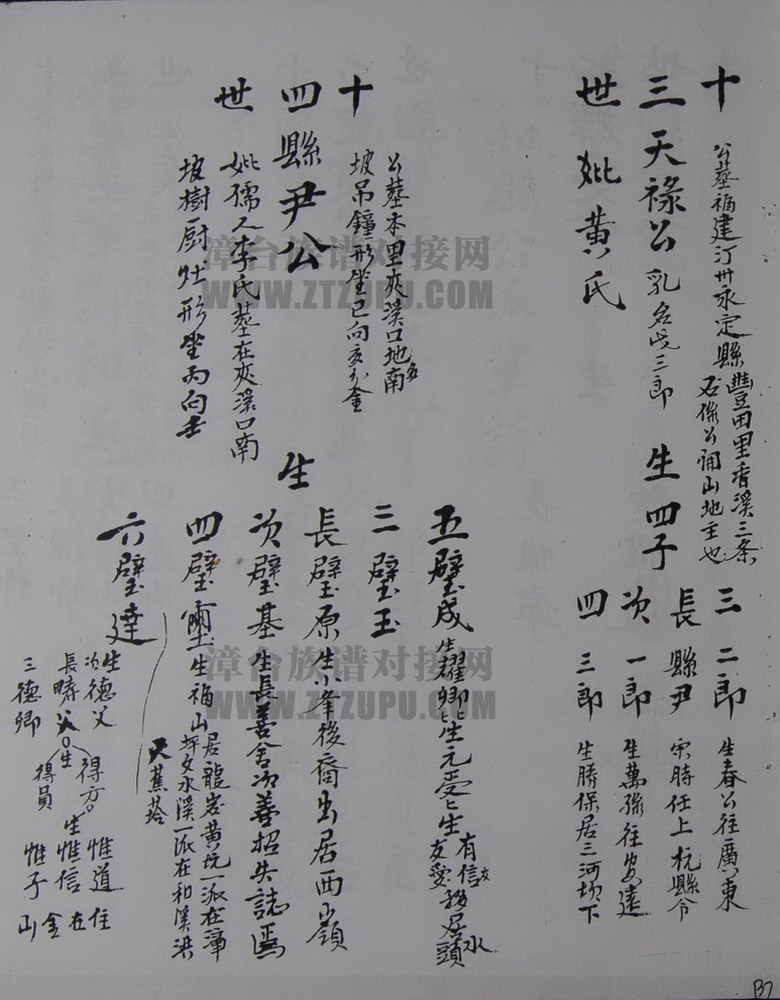 十三世
公墓福建汀州永定縣豐田里香溪三条
石係公開山地主也
天祿公
乳名屺三郎
妣黃氏
生四子
三 二郎 生春公往廣東
長 縣尹 宋時任上杭縣令
次 一郎 生萬孫往安遠
四 三郎 生勝保居三河坝下
十四世
公墓本里夾溪口地名南
坡吊鐘形坐巳向亥分金
縣尹公
妣孺人李氏墓在夾溪口南
坡樹厨灶形坐丙向壬
生
五璧成 生耀卿卿生元受受生有信友愛移居水頭
三璧玉
長璧原 生小峯後裔出居西山嶺
次璧基 生長善舍次善招失誌焉
四璧壐 生福山居龍岩黃坑一派在漳
坪文水溪一派在和溪洪
天蕉塔
六璧達
生
次德父
長疇父
三德卿
生
得方
得員
生
惟道
惟信
惟子
住在金山
漳台族谱对接网
WWW.ZTZUPU.COM
漳台族谱对接网
WWW.ZTZUPU.COM
B7